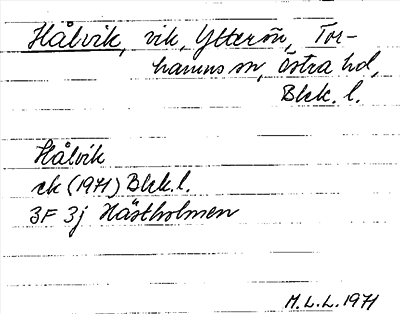 Hålvik, vik, Ytterön, Tor-
hamns sn, Östra hd,
Blek. l.
Hålvik
ek (1971) Blek. l.
3F 3j Hästholmen
M.L.L. 1971